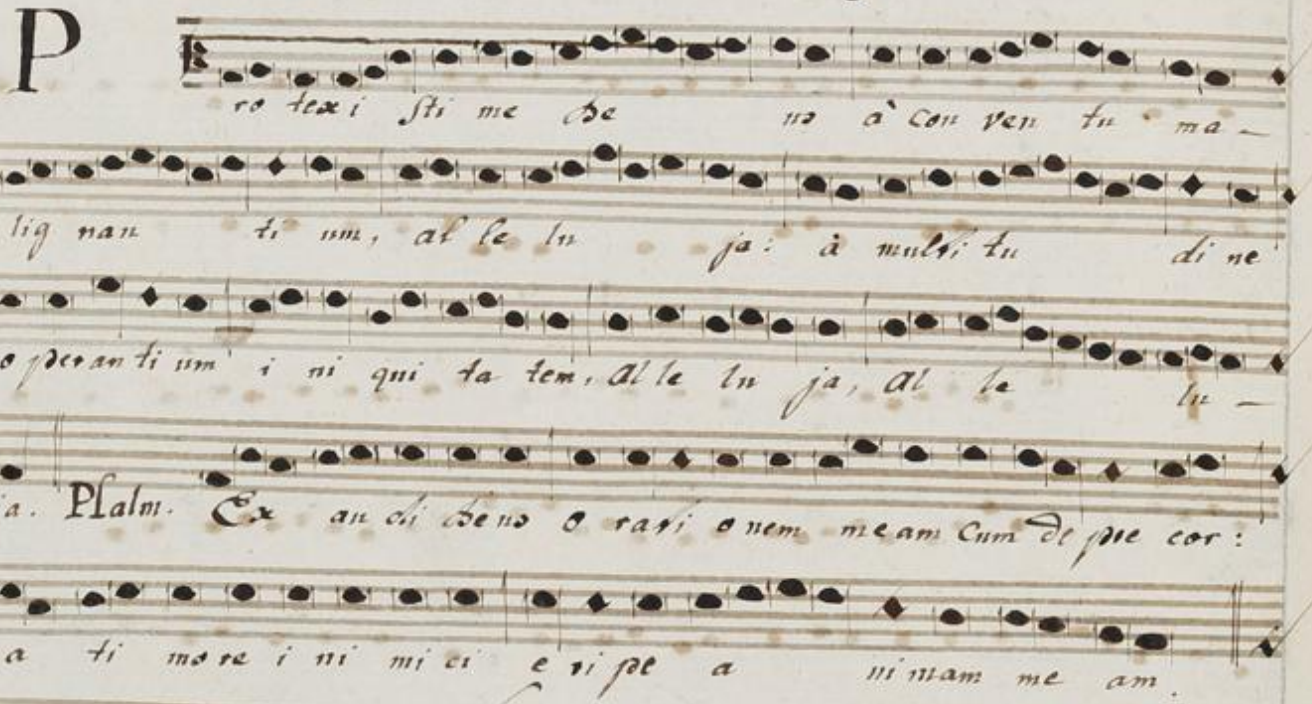 P ro texi sti me De us à con ven tu ma-
lig nan ti um, al le lu ja: à multi tu di ne
o peran ti um i ni qui ta tem, al le lu ja, al le lu-
a. Psalm. Ex au di Deus o rati onem meam cum de pre cor:
a ti more i ni mi ci e ri pe a ni mam me am.